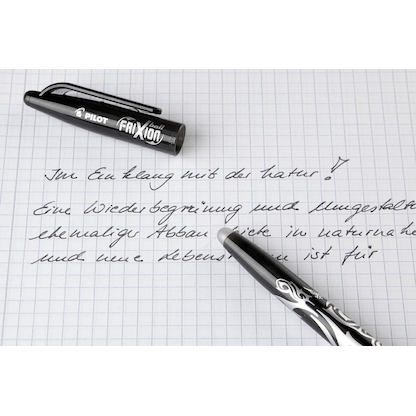 PILOT
FRIXION ball
Im Einklang mit der Natur!
Eine Wiederbegrünung und Umgestalt
ehemaliger Abbau biete in naturnahe
und neue Lebens en ist für